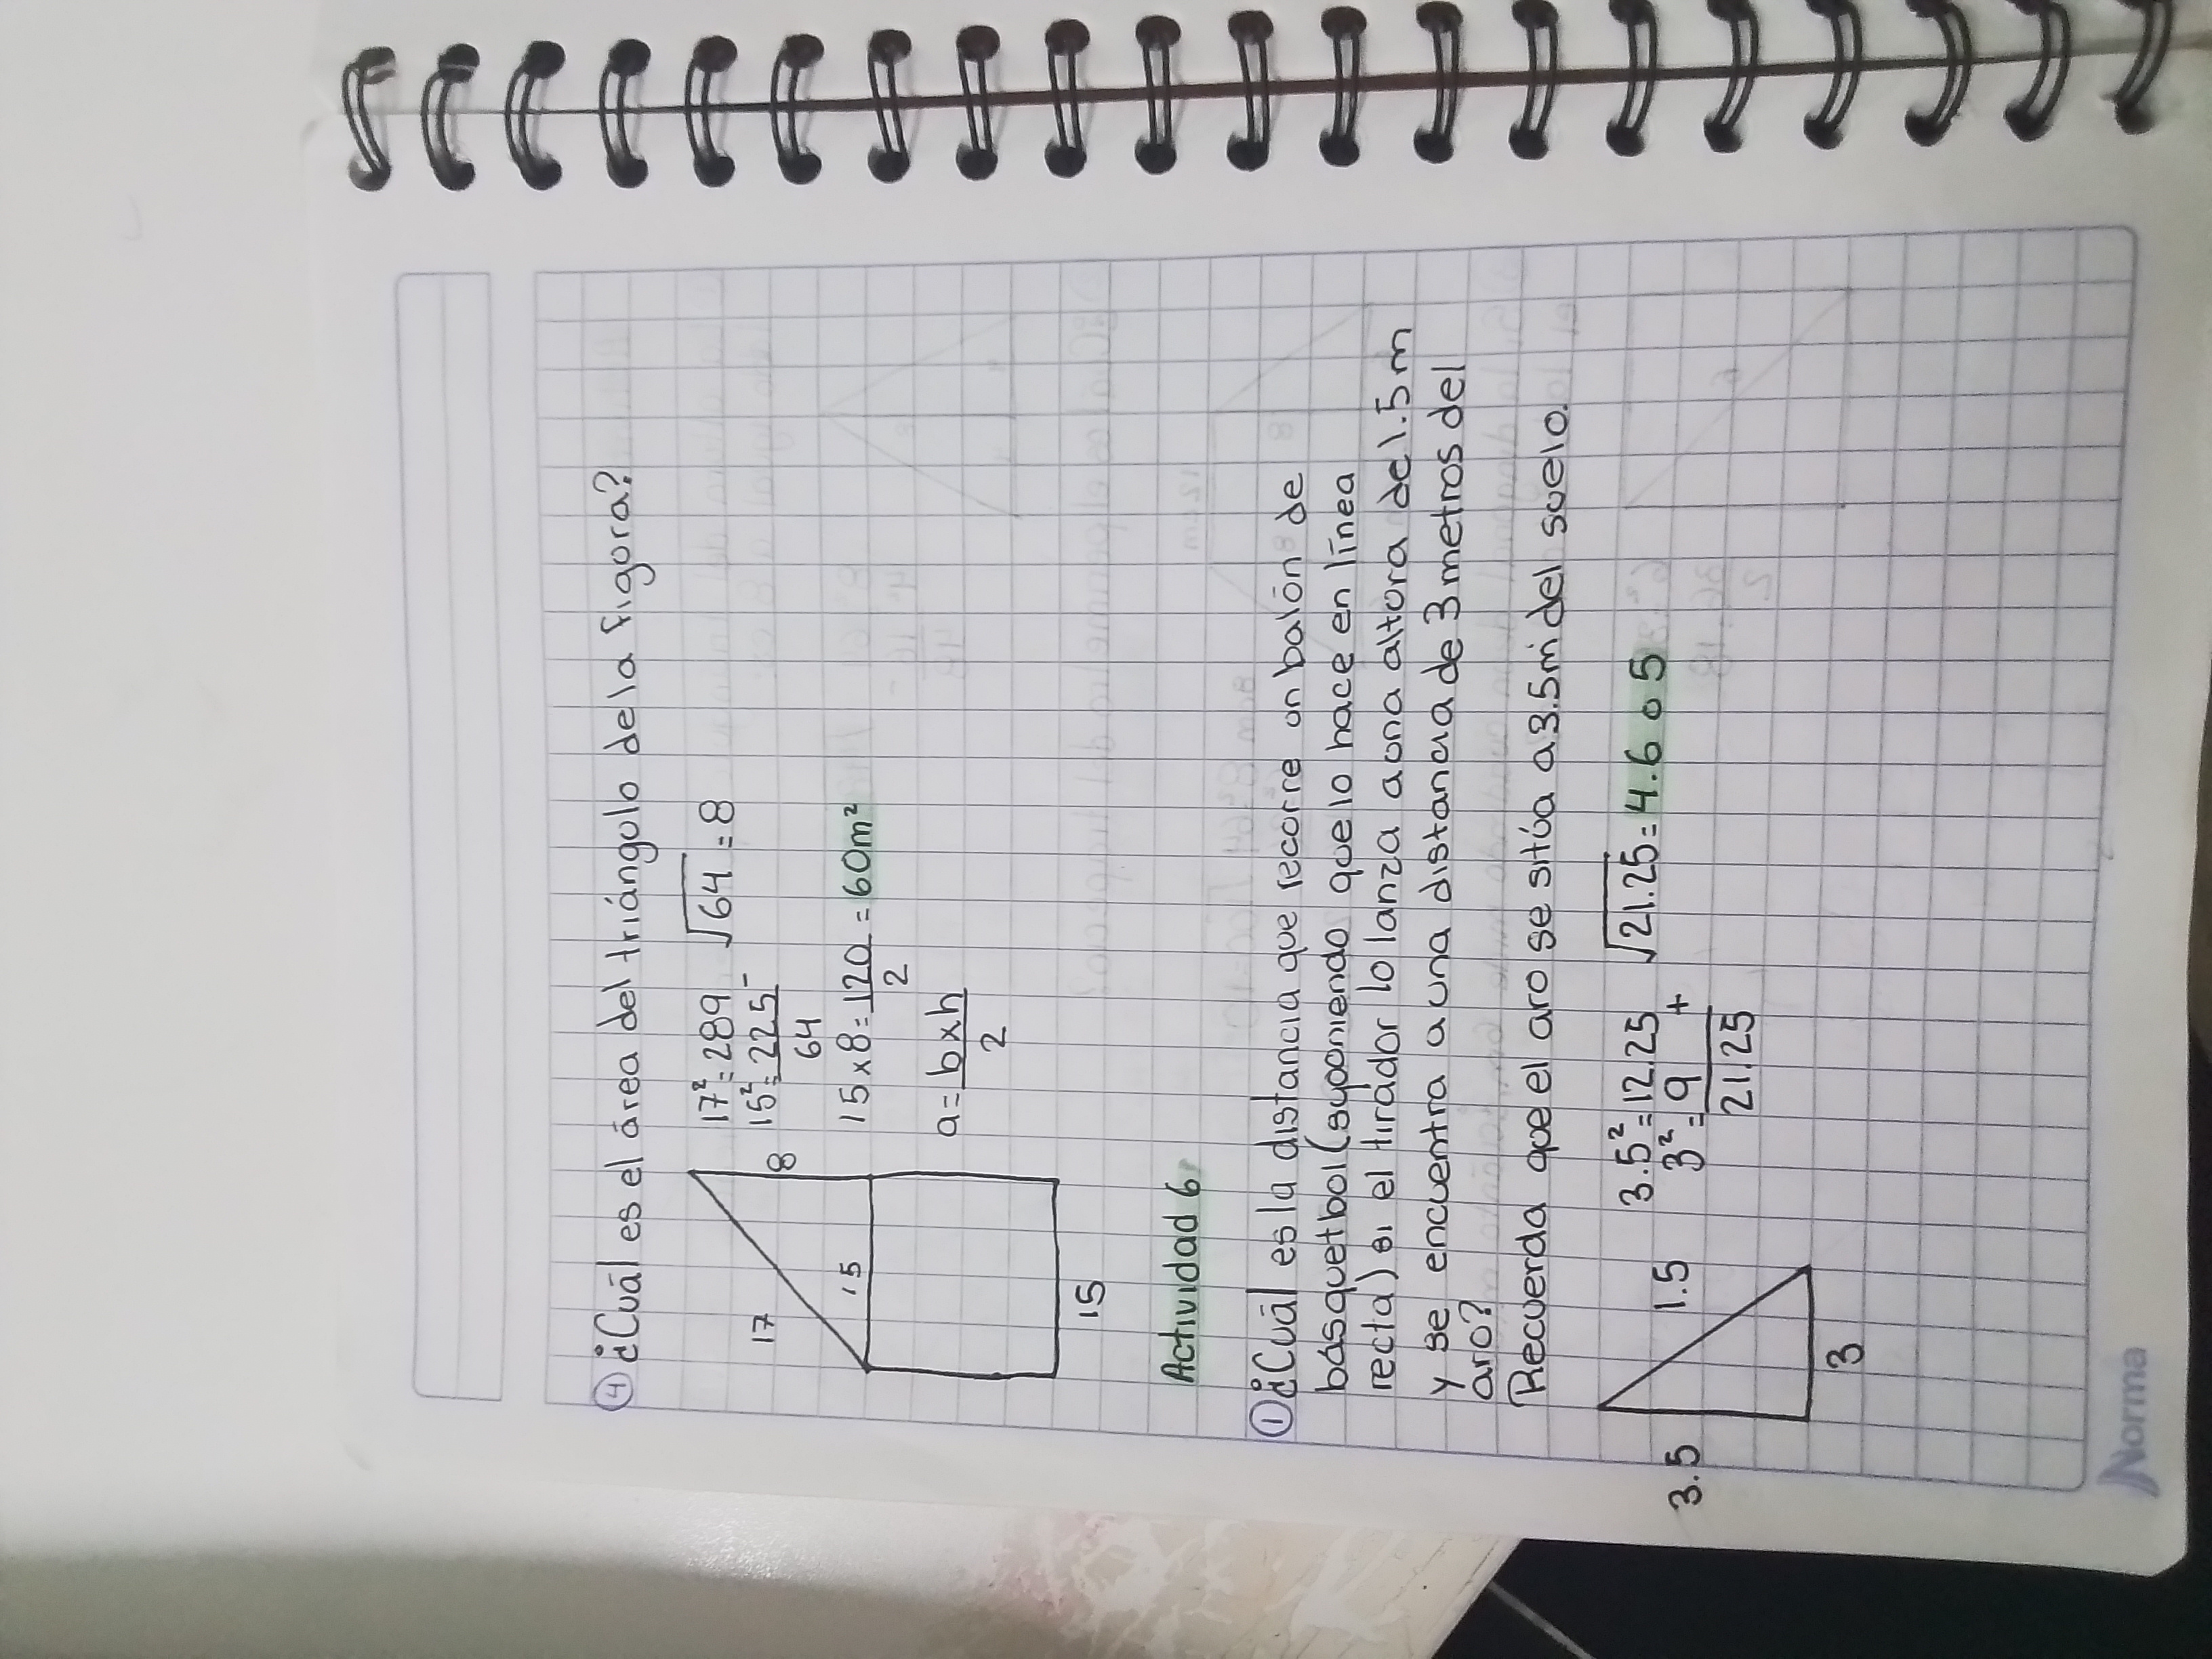 ④ ¿Cuál es el área del triángulo de la figura?
17
8
15
15
17²=289
15²=225 -
64
√64 = 8
15x8=120 = 60m²
2
a=bxh
2
Actividad 6
① ¿Cuál es la distancia que recorre un balón de
básquetbol (suponiendo que lo hace en línea
recta) si el tirador lo lanza a una altura de 1.5 m
y se encuentra a una distancia de 3 metros del
aro?
Recuerda que el aro se sitúa a 3.5m del suelo.
3.5
1.5
3
3.5²=12.25
3²= 9 +
21.25
√21.25=4.6 o 5
Norma